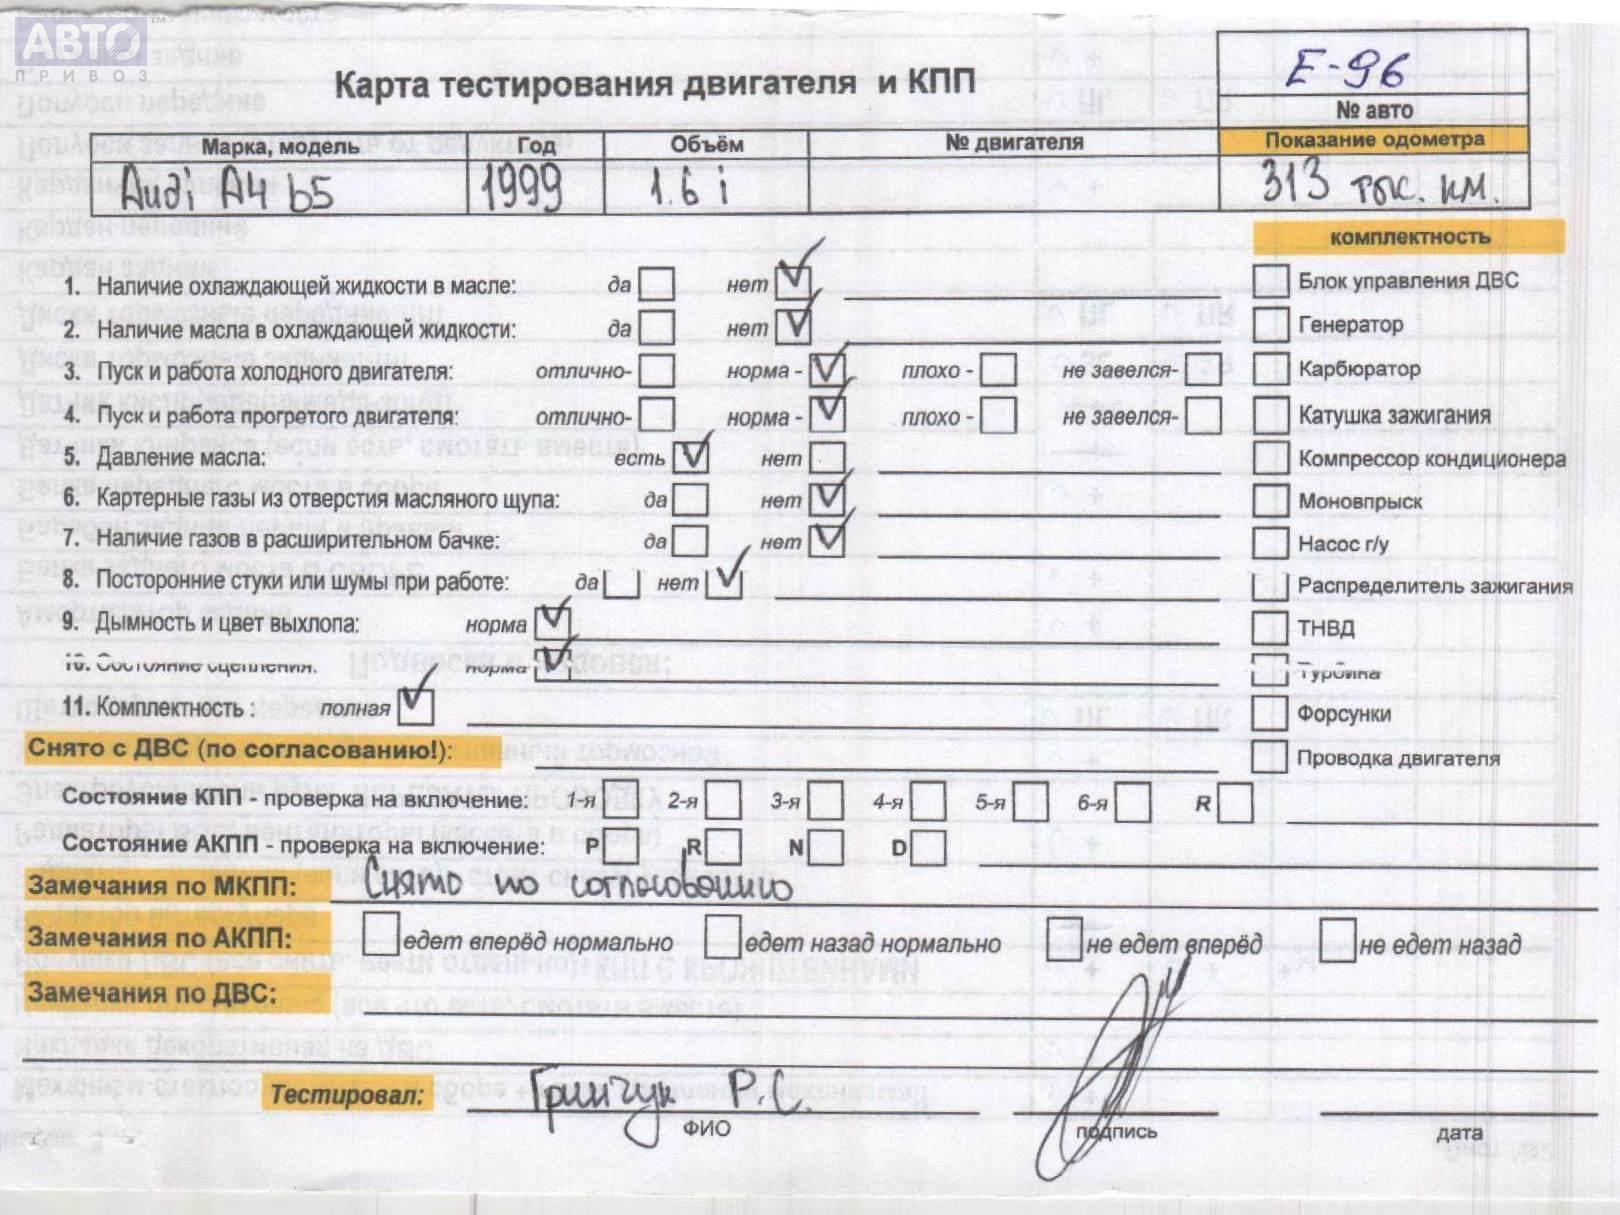 АВТО™
ПРИВОЗ
Е-96
Карта тестирования двигателя и КПП
№ авто
Марка, модель Год Объём № двигателя Показание одометра
Audi A4 b5 1999 1.6 i 313 тыс. км.
комплектность
1. Наличие охлаждающей жидкости в масле: да нет Блок управления ДВС
2. Наличие масла в охлаждающей жидкости: да нет Генератор
3. Пуск и работа холодного двигателя: отлично- норма - плохо - не завелся- Карбюратор
4. Пуск и работа прогретого двигателя: отлично- норма - плохо - не завелся- Катушка зажигания
5. Давление масла: есть нет Компрессор кондиционера
6. Картерные газы из отверстия масляного щупа: да нет Моновпрыск
7. Наличие газов в расширительном бачке: да нет Насос г/у
8. Посторонние стуки или шумы при работе: да нет Распределитель зажигания
9. Дымность и цвет выхлопа: норма ТНВД
10. Состояние сцепления: норма Турбина
11. Комплектность : полная Форсунки
Снято с ДВС (по согласованию!): Проводка двигателя
Состояние КПП - проверка на включение: 1-я 2-я 3-я 4-я 5-я 6-я R
Состояние АКПП - проверка на включение: P R N D
Замечания по МКПП: Снято по согласованию
Замечания по АКПП: едет вперёд нормально едет назад нормально не едет вперёд не едет назад
Замечания по ДВС:
Тестировал: Гринчук Р.С.
ФИО подпись дата